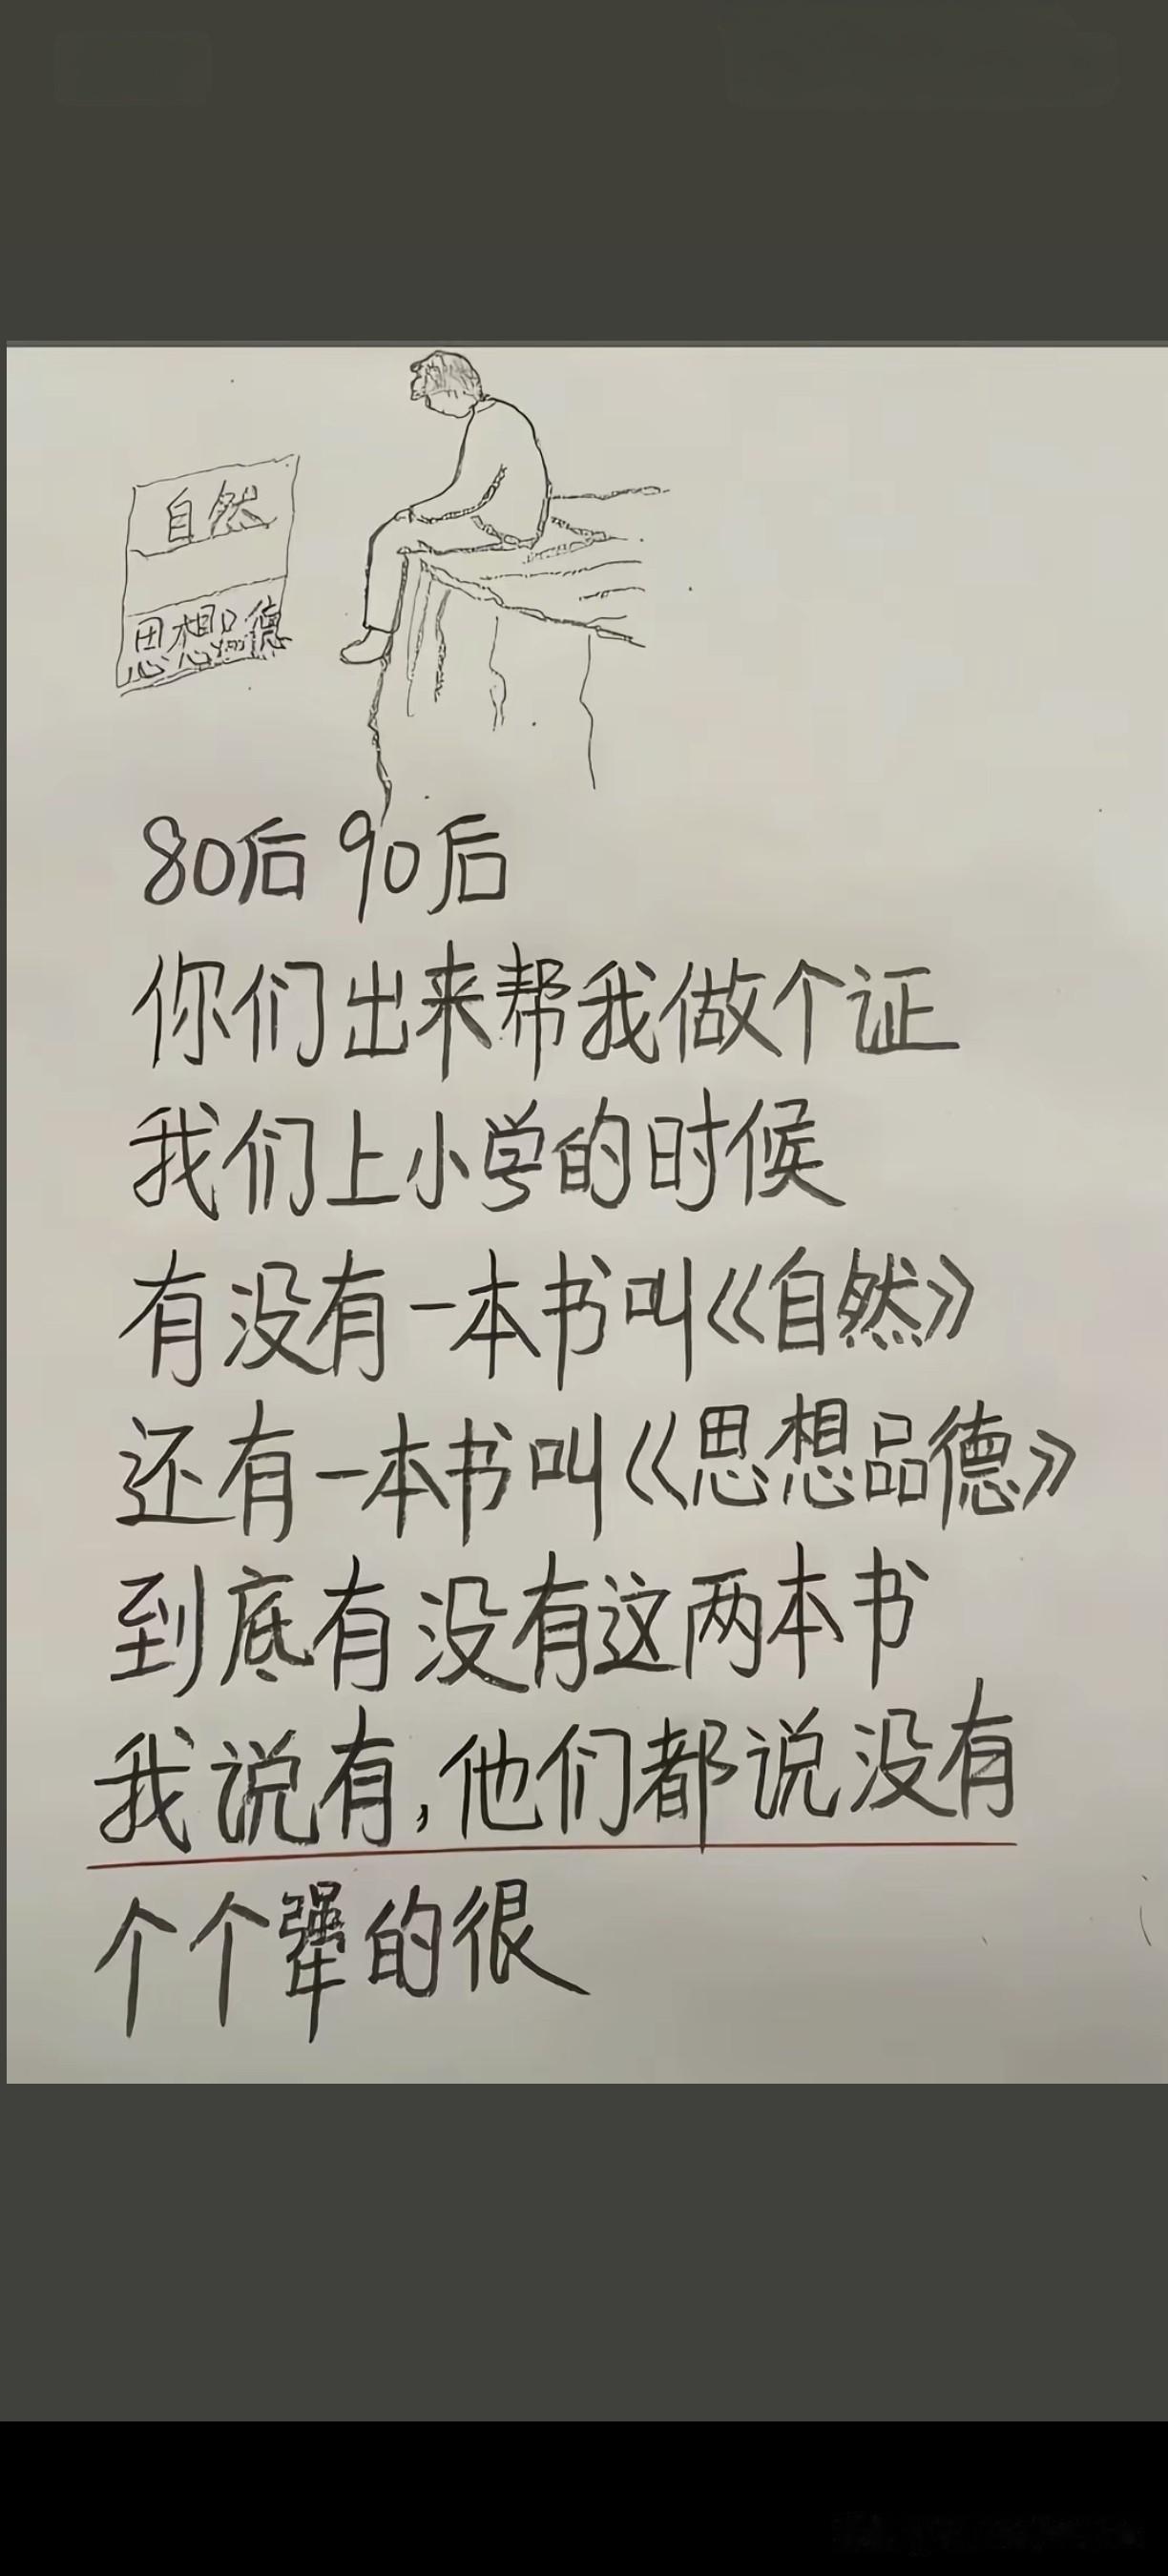 自然
思想品德
80后 90后
你们出来帮我做个证
我们上小学的时候
有没有一本书叫《自然》
还有一本书叫《思想品德》
到底有没有这两本书
我说有,他们都说没有
个个犟的很